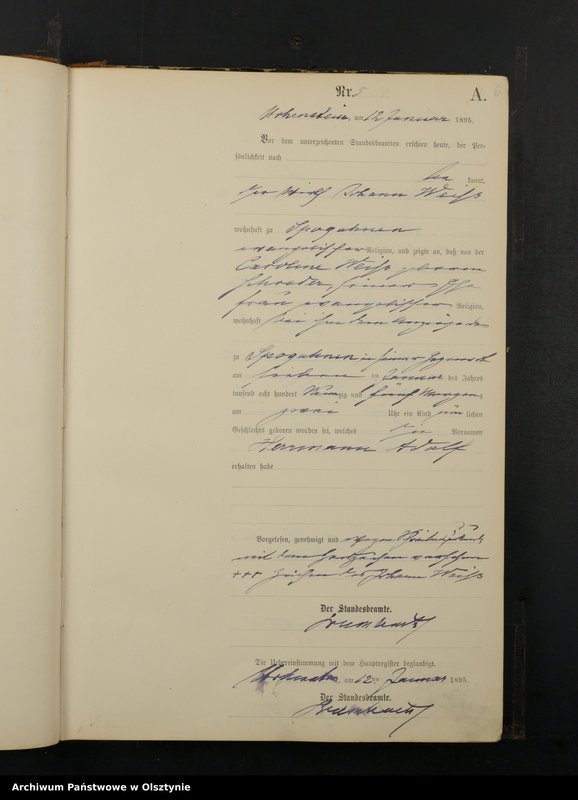 Nr. 5
A.
6
Hohenstein, am 12 Januar 1895.
Vor dem unterzeichneten Standesbeamten erschien heute, der Per-
sönlichkeit nach
be kannt,
der Wirth Johann Weiß
wohnhaft zu Spogahnen
evangelischer Religion, und zeigte an, daß von der
Caroline Weiß geborene
Schroeder, seiner Ehe-
frau evangelischer Religion,
wohnhaft bei ihm dem Anzeigenden
zu Spogahnen in seiner Gegenwart
am sieben ten Januar des Jahres
tausend acht hundert neunzig und fünf Morgens
um zwei Uhr ein Kind männlichen
Geschlechts geboren worden sei, welches die Vornamen
Herrmann Adolf
erhalten habe
Vorgelesen, genehmigt und wegen
mit dem Handzeichen versehen
+++ Zeichen des Johann Weiß
Der Standesbeamte.
Die Uebereinstimmung mit dem Hauptregister beglaubigt.
Hohenstein, am 12ten Januar 1895.
Der Standesbeamte.
Archiwum Państwowe w Olsztynie